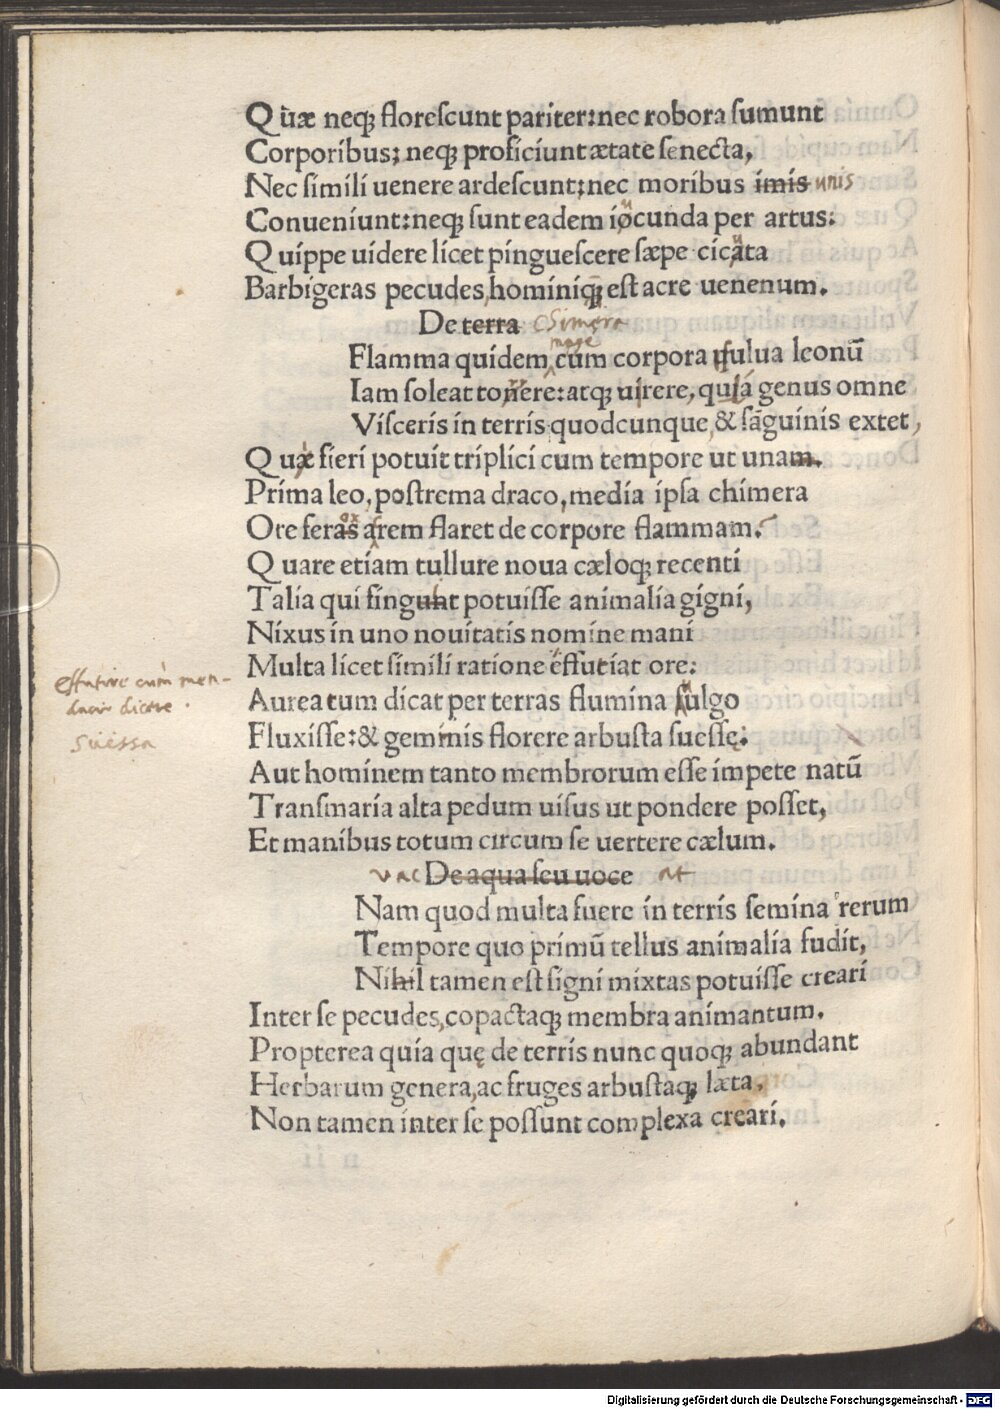 Quæ neqꝫ florescunt pariter:nec robora sumunt
Corporibus; neqꝫ proficiunt ætate senecta,
Nec simili uenere ardescunt;nec moribus imis unis
Conueniunt:neqꝫ sunt eadem iocunda per artus:
Quippe uidere licet pinguescere sæpe cicata
Barbigeras pecudes,hominiqꝫ est acre uenenum.
De terra Simera
mage
Flamma quidem cum corpora fulua leonũ
Iam soleat torrere:atqꝫ urere, quiá genus omne
Visceris in terris quodcunque,& sãguinis extet,
Quæ fieri potuit triplici cum tempore ut unam.
Prima leo,postrema draco,media ipsa chimera
Ore feras arem flaret de corpore flammam.
Quare etiam tullure noua cæloqꝫ recenti
Talia qui fingunt potuisse animalia gigni,
Nixus in uno nouitatis nomine mani
Multa licet simili ratione effutiat ore:
effutire cum men-
dacio dicere.
Aurea tum dicat per terras flumina fulgo
Suessa
Fluxisse:& geminis florere arbusta suessę:
Aut hominem tanto membrorum esse impete natũ
Transmaria alta pedum uisus ut pondere posset,
Et manibus totum circum se uertere cælum.
vac De aqua seu uoce at
Nam quod multa fuere in terris semina rerum
Tempore quo primũ tellus animalia fudit,
Nihil tamen est signi mixtas potuisse creari
Inter se pecudes,copactaqꝫ membra animantum.
Propterea quia quę de terris nunc quoqꝫ abundant
Herbarum genera,ac fruges arbustaqꝫ læta,
Non tamen inter se possunt complexa creari.
Digitalisierung gefördert durch die Deutsche Forschungsgemeinschaft - DFG